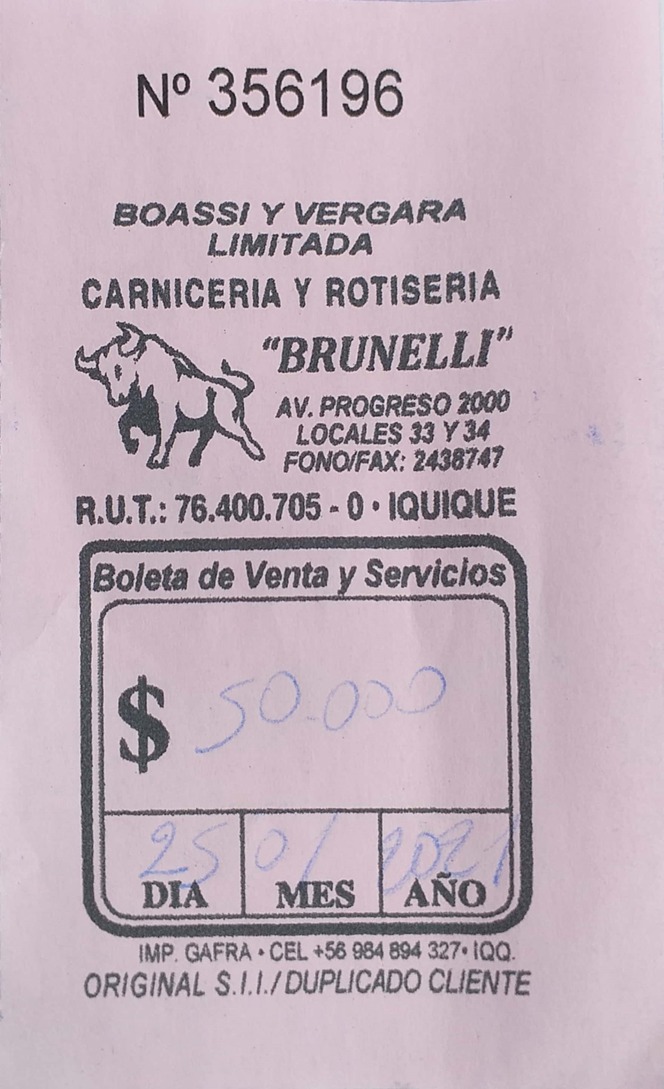 Nº 356196
BOASSI Y VERGARA
LIMITADA
CARNICERIA Y ROTISERIA
"BRUNELLI"
AV. PROGRESO 2000
LOCALES 33 Y 34
FONO/FAX: 2438747
R.U.T.: 76.400.705 - 0 • IQUIQUE
Boleta de Venta y Servicios
$ 50.000
25 01 2021
DIA MES AÑO
IMP. GAFRA • CEL +56 984 894 327• IQQ.
ORIGINAL S.I.I./DUPLICADO CLIENTE